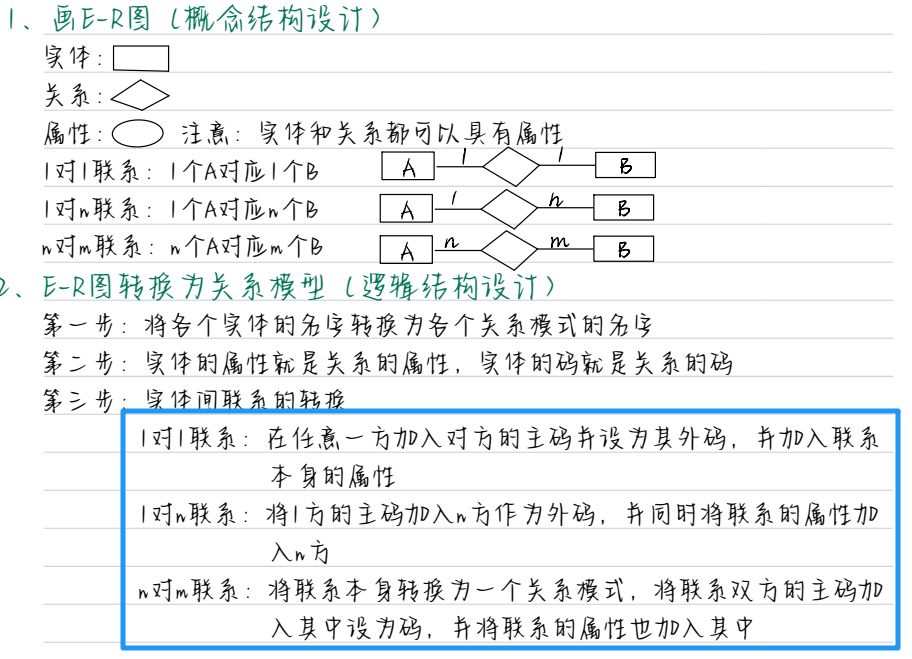 1、画E-R图（概念结构设计）
实体：
关系：
属性： 注意：实体和关系都可以具有属性
1对1联系：1个A对应1个B A 1 1 B
1对n联系：1个A对应n个B A 1 n B
n对m联系：n个A对应m个B A n m B
2、E-R图转换为关系模型（逻辑结构设计）
第一步：将各个实体的名字转换为各个关系模式的名字
第二步：实体的属性就是关系的属性，实体的码就是关系的码
第三步：实体间联系的转换
1对1联系：在任意一方加入对方的主码并设为其外码，并加入联系
本身的属性
1对n联系：将1方的主码加入n方作为外码，并同时将联系的属性加
入n方
n对m联系：将联系本身转换为一个关系模式，将联系双方的主码加
入其中设为码，并将联系的属性也加入其中